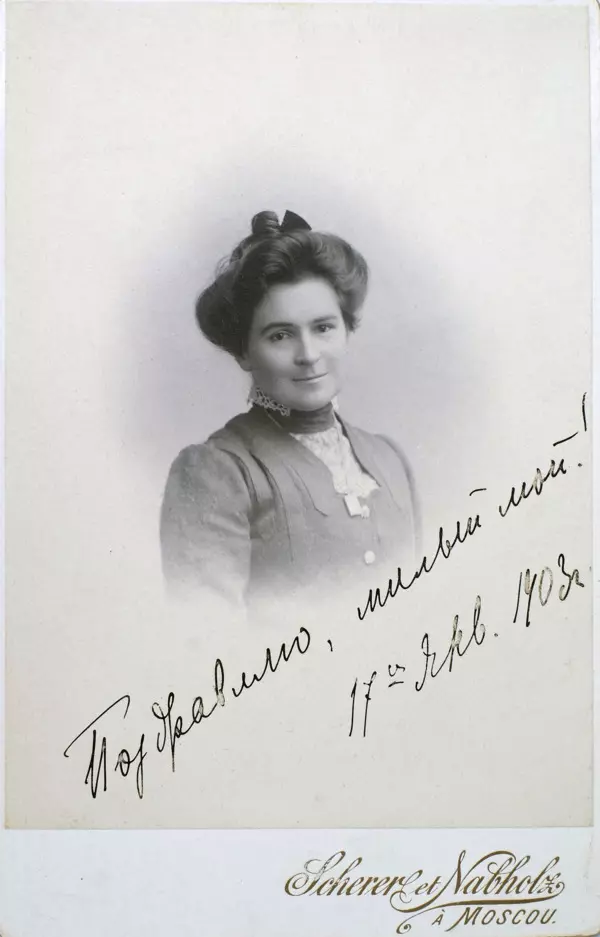 Поздравляю, милый мой!
17го Янв. 1903 г.
Scherer et Nabholz
À MOSCOU.